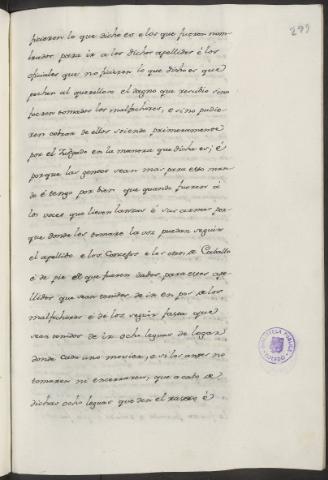 299
ficieren lo que dicho es e los que fueren nom
brados para ir a los dichos apellidos é los
oficiales que no ficieren lo que dicho es que
pechen al querelloso el dagno que recibio si no
fueren tomados los malfechores, e si no pudie
ren cobrar de ellos seiendo primeramente
por el Juzgado en la manera que dicho es; é
porque las gentes sean mas para esto man
do é tengo por bien que quando fueren á
las voces que lieven lanzas é sus armas por
que donde les tomare la voz puedan seguir
el apellido e los Concejos e los otros de Caballo
é de pie que fueren dados para estos ape
llidos que sean tenidos de ir en pos de los
malfechores é de los seguir fasta que
sean tenidos de ir ocho leguas de logar
donde cada uno moviere, e si los antes no
tomaren ni encerraren, que a cabo de
dichas ocho leguas que den el rastro é